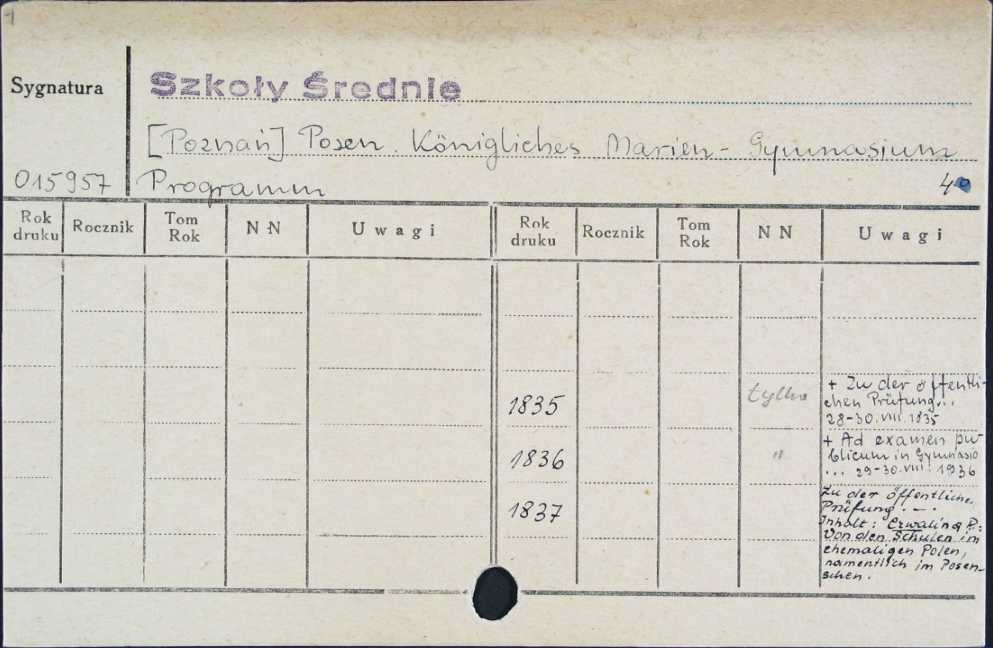 1
Sygnatura
Szkoły Średnie
[Poznań] Posen. Königliches Marien-Gymnasium
015957 Programm 4°
Rok druku Rocznik Tom Rok NN Uwagi Rok druku Rocznik Tom Rok NN Uwagi
1835 tylko + Zu der öffentli-
chen Prüfung...
28-30.VIII.1835
1836 " + Ad examen pu-
blicum in Gymnasio
... 29-30.VIII.1936
1837 Zu der öffentliche
Prüfung. -.
Inhalt: Czwalina P.:
Von den Schulen im
ehemaligen Polen,
namentlich im Posen-
schen.